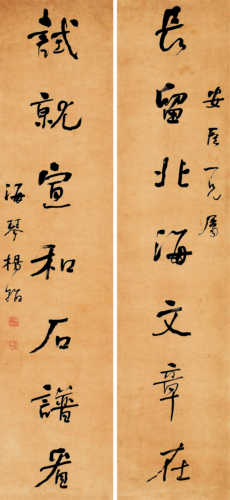 安臣一兄屬
長留北海文章在
試就宣和石譜看
海琴楊翰